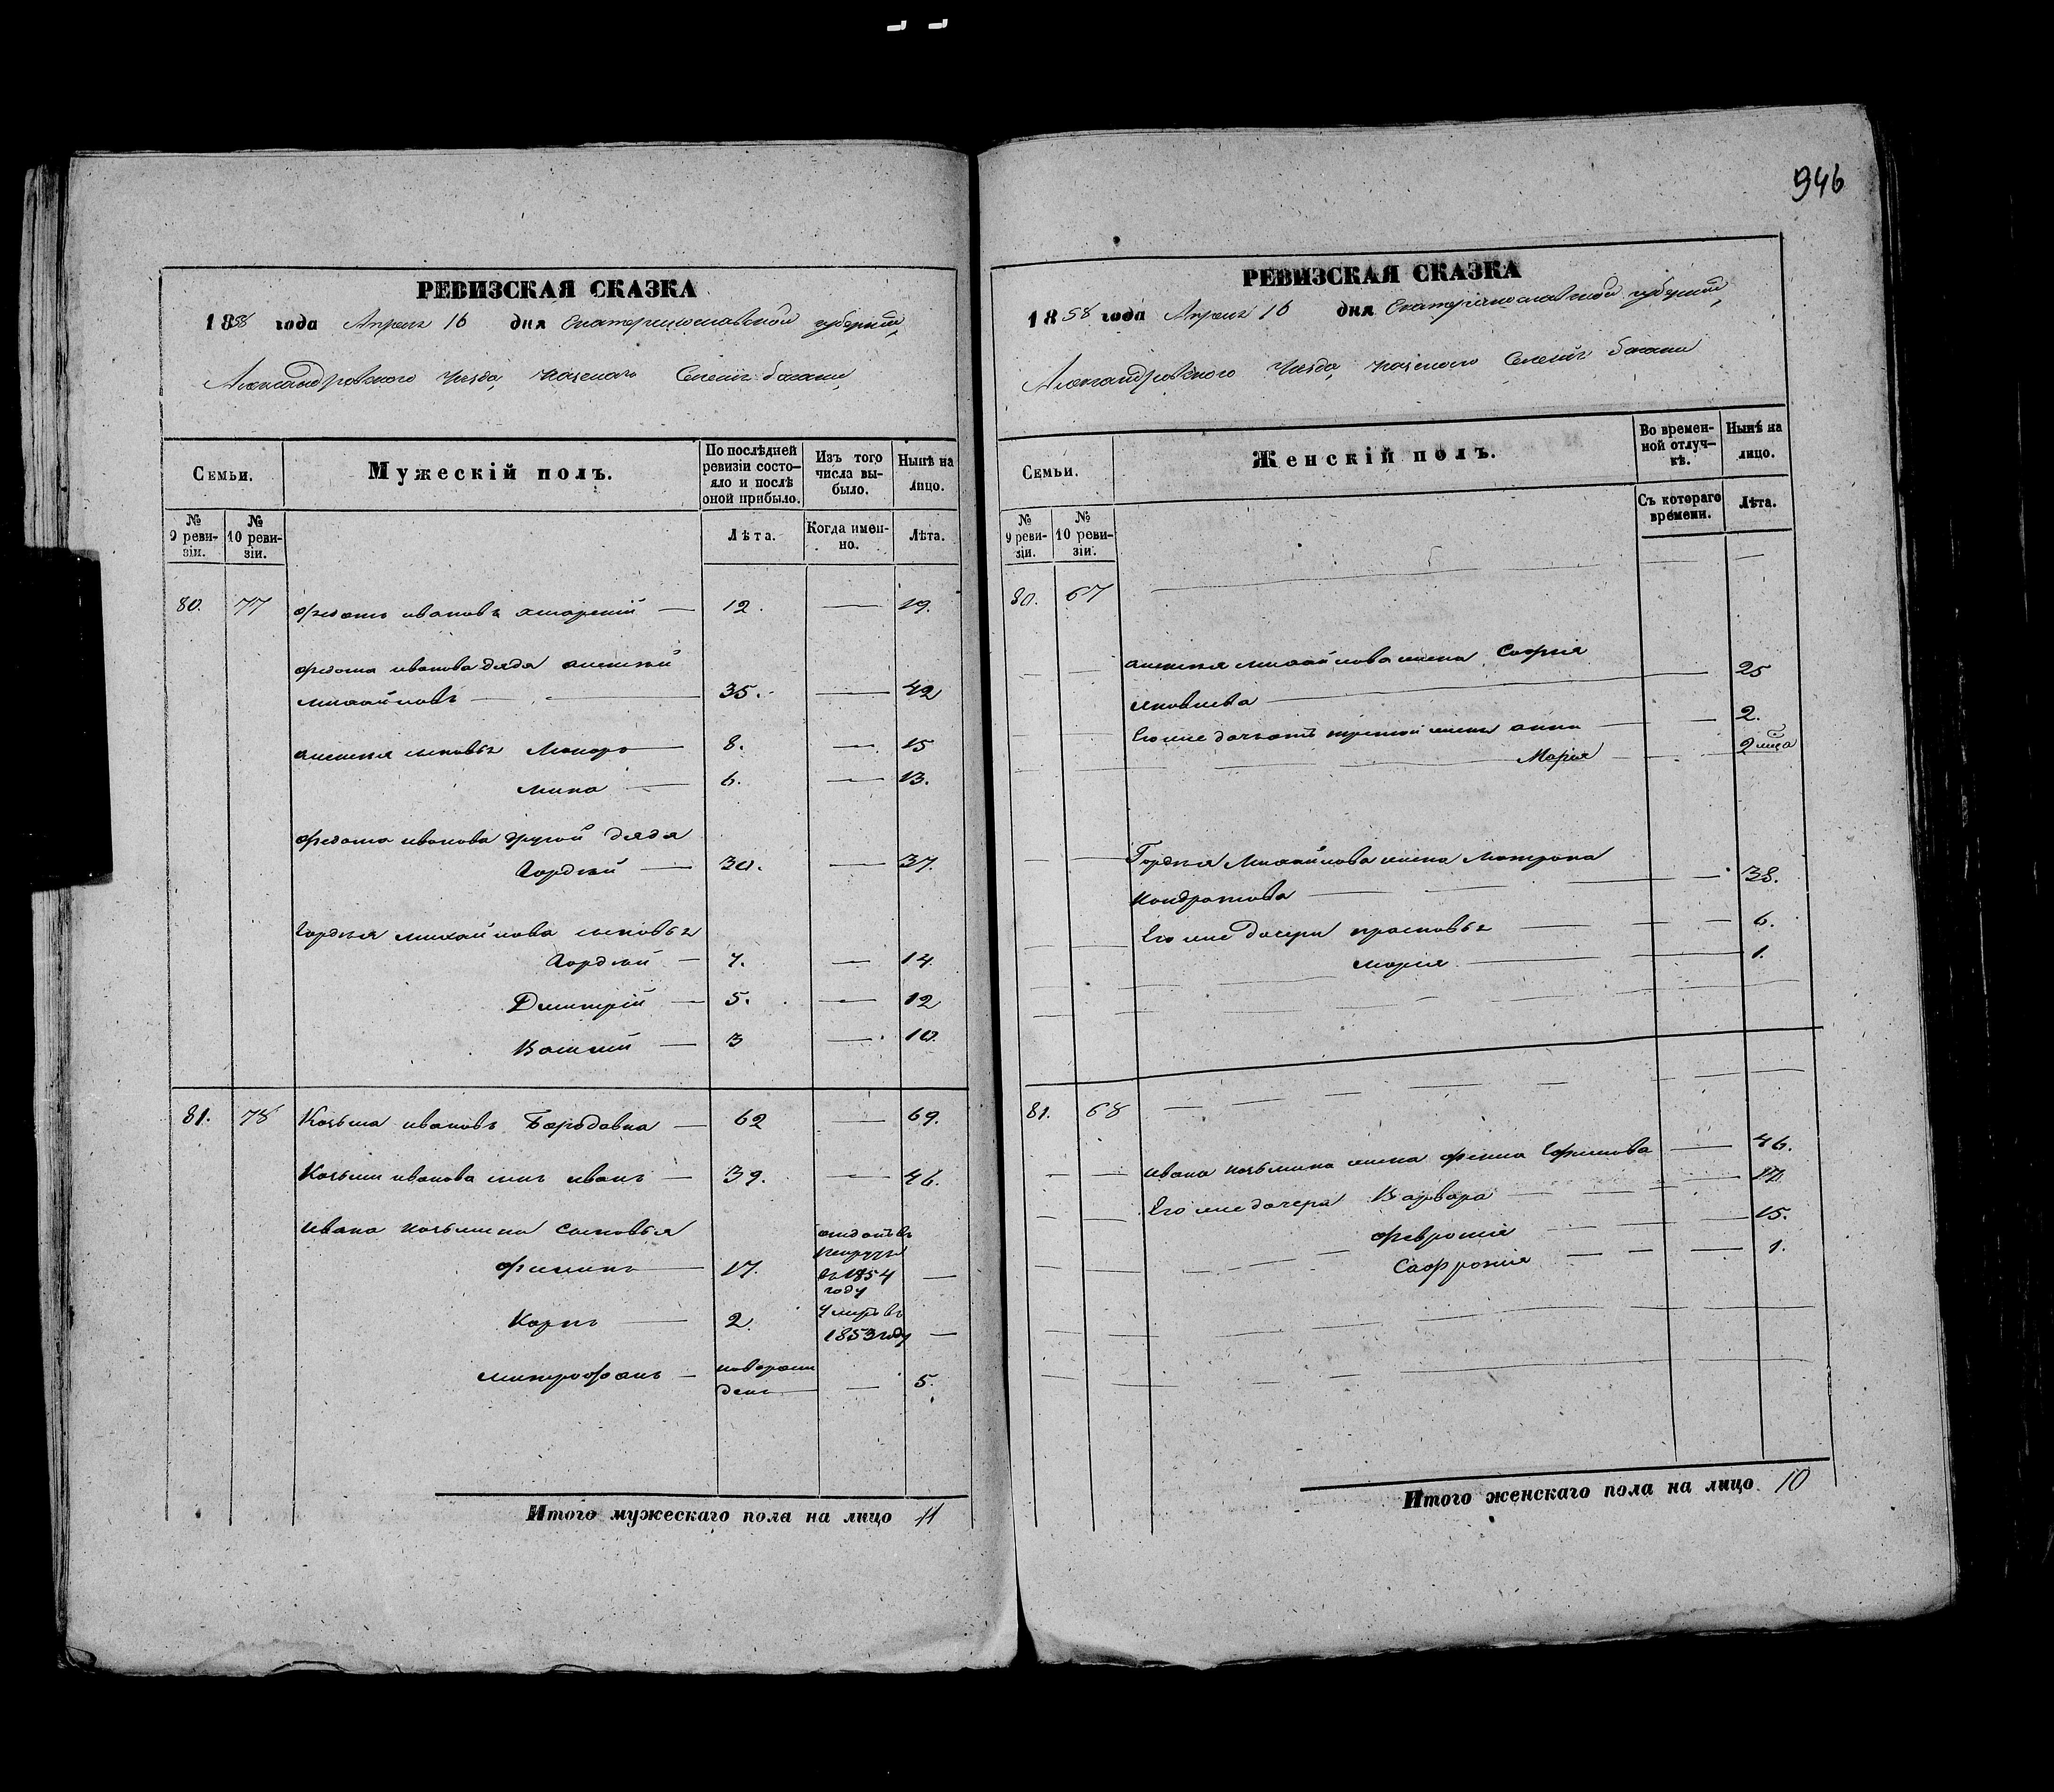 946
РЕВИЗСКАЯ СКАЗКА
1858 года Апреля 16 дня Екатеринославской губернии
Александровского уезда казенного Селения
Семьи.
Мужескій полъ.
По послѣдней ревизіи состояло и послѣ оной прибыло.
Изъ того числа выбыло.
Нынѣ на лицо.
№ 9 ревизіи.
№ 10 ревизіи.
Лѣта.
Когда именно.
Лѣта.
80. 77 Федотъ ивановъ — 12. — 19.
Федота иванова дядя алексей
михайловъ — 35. — 42
алексея сыновья Макаръ — 8. — 15
мина — 6. — 13.
Федота иванова другой дядя
Гордей — 30. — 37.
Гордея михайлова сыновья
Гордей — 7. — 14.
Дмитрій — 5. — 12
Василий — 3 — 10.
81. 78 Козьма ивановъ Бородавка — 62 — 69.
Козьми иванова сынъ иванъ — 39. — 46.
ивана козьмина сыновья
Филипъ — 17. отданъ въ рекруты въ 1854 году —
Карпъ — 2. умеръ въ 1853 году —
митрофанъ — новорожденъ — 5.
Итого мужескаго пола на лицо 11
РЕВИЗСКАЯ СКАЗКА
1858 года Апреля 16 дня Екатеринославской губернии
Александровского уезда казенного Селения
Семьи.
Женскій полъ.
Во временной отлучкѣ.
Нынѣ на лицо.
№ 9 ревизіи.
№ 10 ревизіи.
Съ котораго времени.
Лѣта.
80. 67
алексея михайлова жена София
яковлева — 25
Его же дочь отъ третой жены анна — 2.
Мария — 2
Гордея Михайлова жена Матрона
Кондратова — 38.
Его же дочери прасковья — 6.
мария — 1.
81. 68
ивана козьмина жена Фекла Ефимова — 46.
Его же дочери Варвара —
Феврония — 15.
Софрония — 1.
Итого женскаго пола на лицо 10